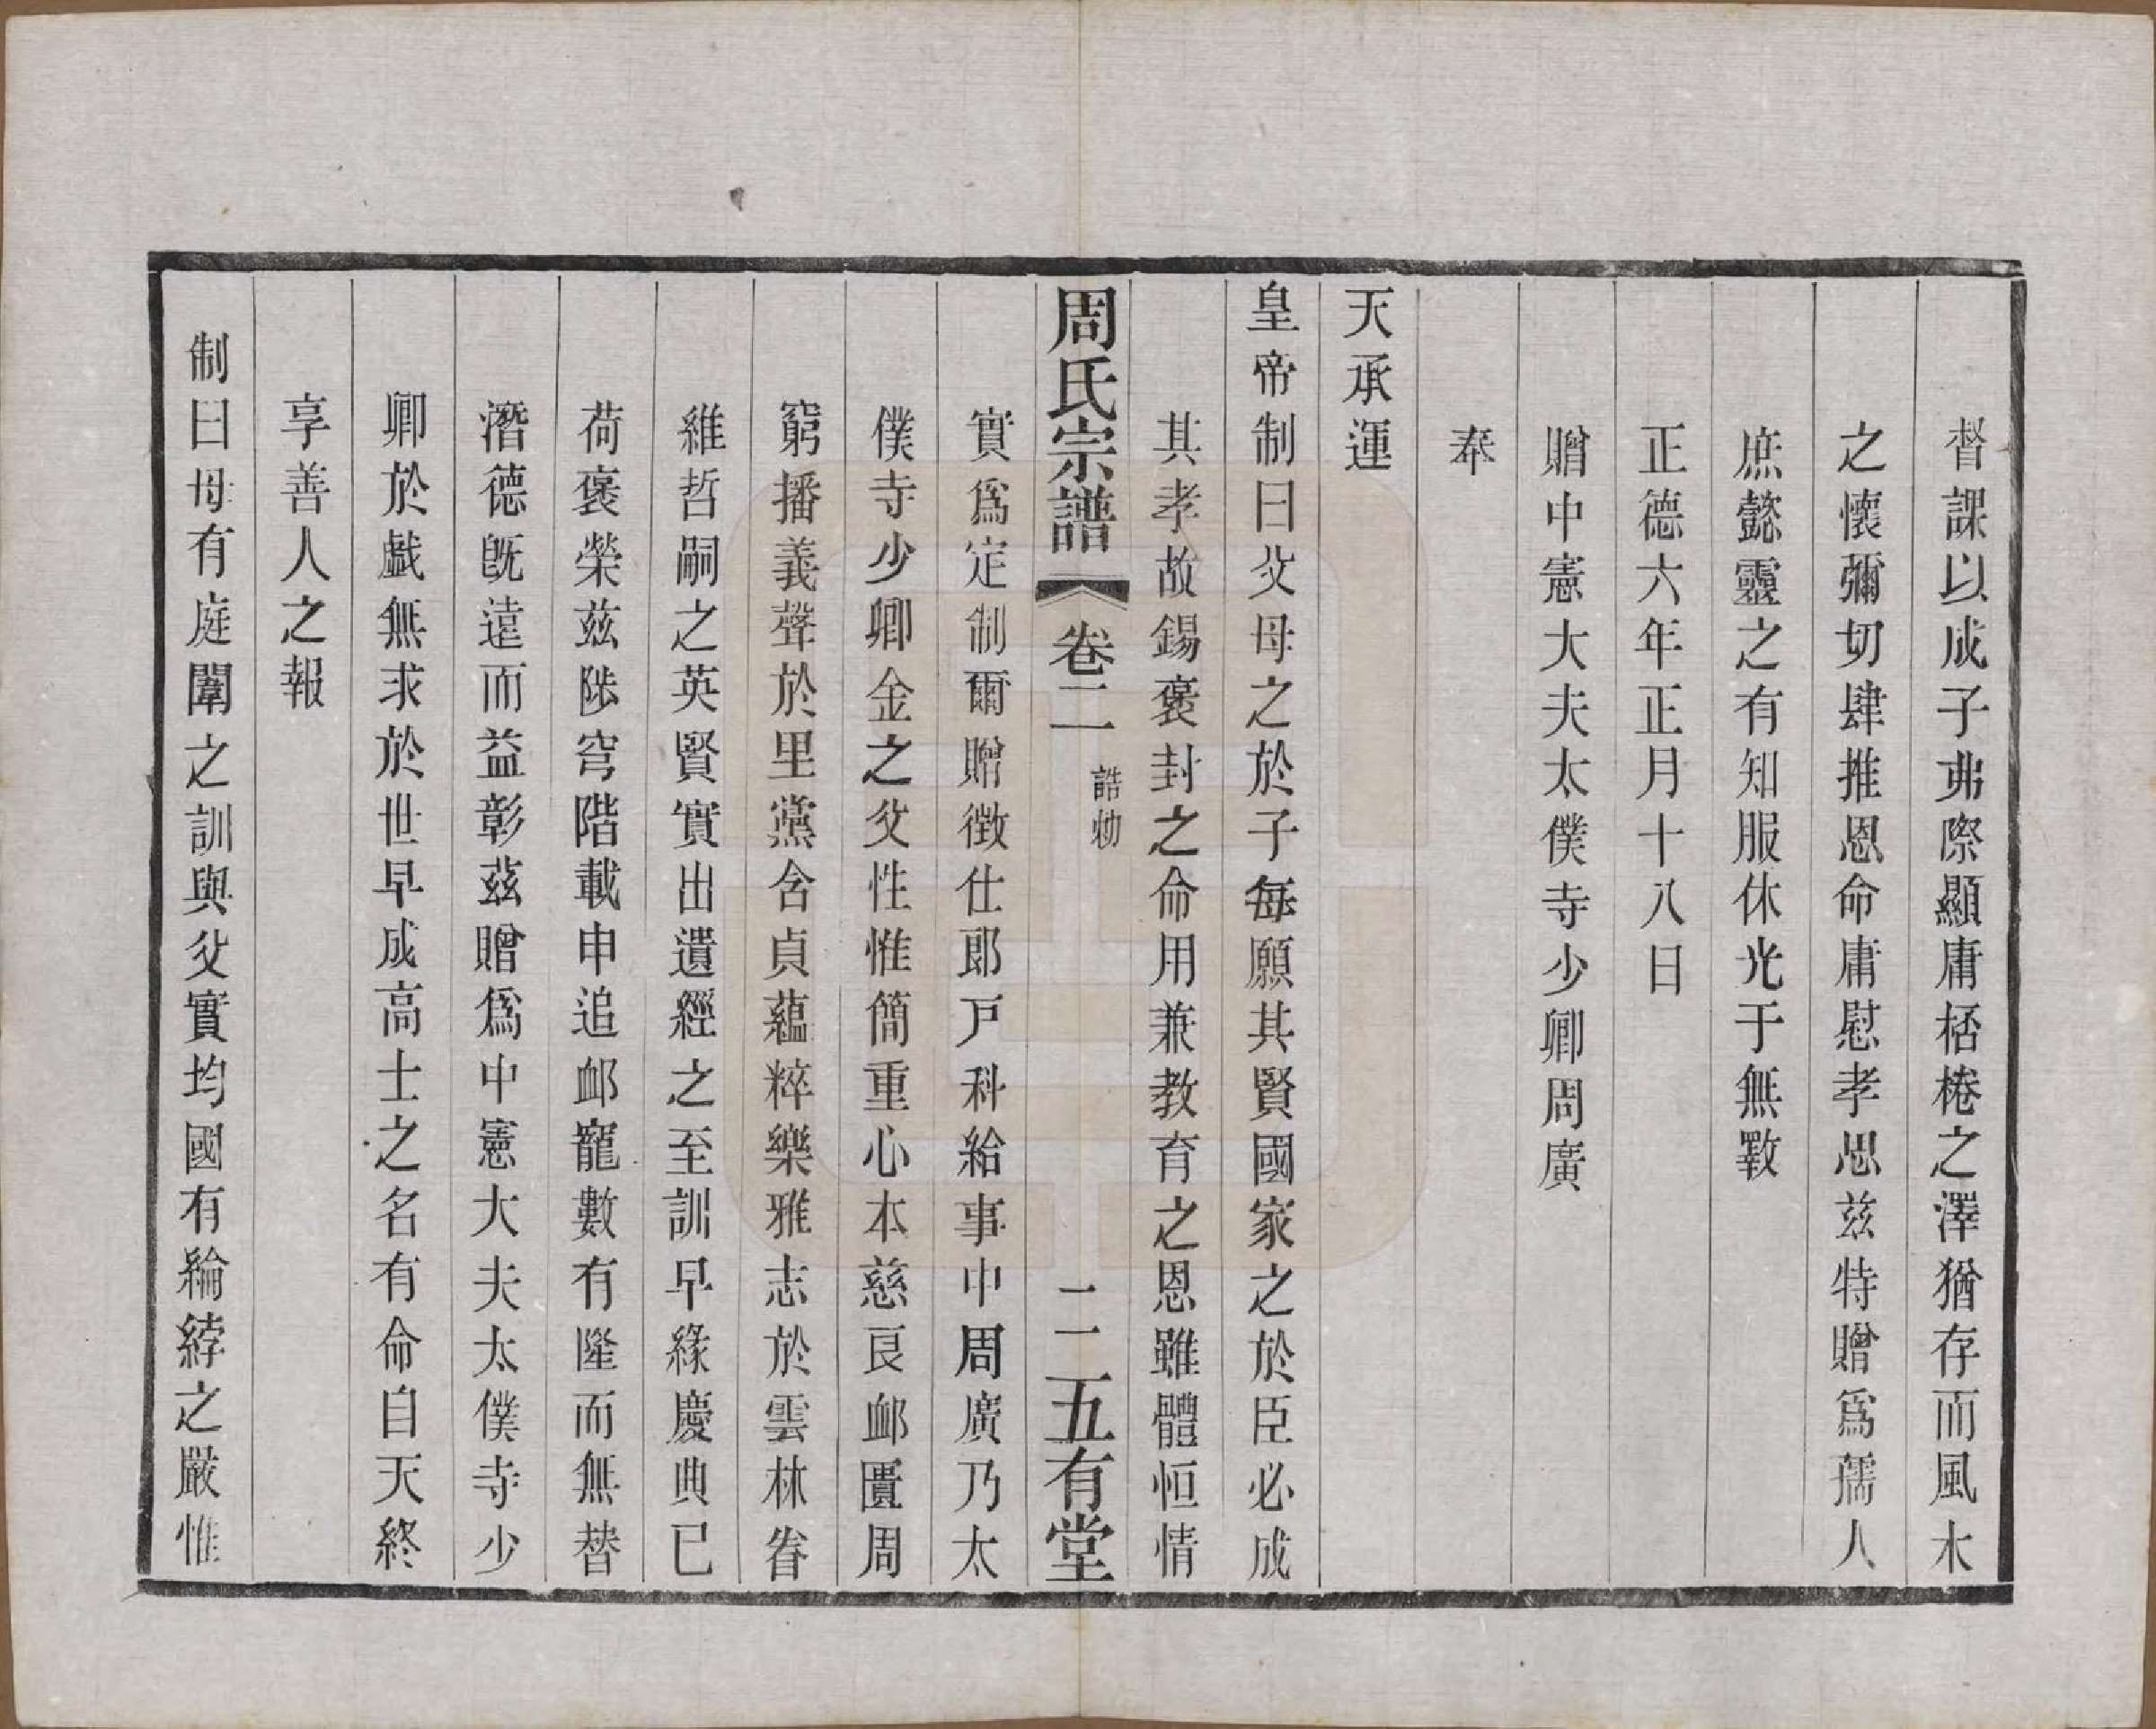 督課以成子弗際顯庸桮棬之澤猶存而風木
之懷彌切肆推恩命庸慰孝思茲特贈爲孺人
庶懿靈之有知服休光于無斁
正德六年正月十八日
贈中憲大夫太僕寺少卿周廣
奉
天承運
皇帝制曰父母之於子每願其賢國家之於臣必成
其孝故錫褒封之命用兼教育之恩雖體恒情
周氏宗譜 卷二 誥勅 二 五有堂
實爲定制爾贈徵仕郎戸科給事中周廣乃太
僕寺少卿金之父性惟簡重心本慈良卹匱周
窮播義聲於里黨含貞蘊粹樂雅志於雲林眷
維哲嗣之英賢實出遺經之至訓早緣慶典已
荷褒榮茲陟穹階載申追卹寵數有隆而無替
潛德旣遠而益彰茲贈爲中憲大夫太僕寺少
卿於戲無求於世早成高士之名有命自天終
享善人之報
制曰母有庭闈之訓與父實均國有綸綍之嚴惟